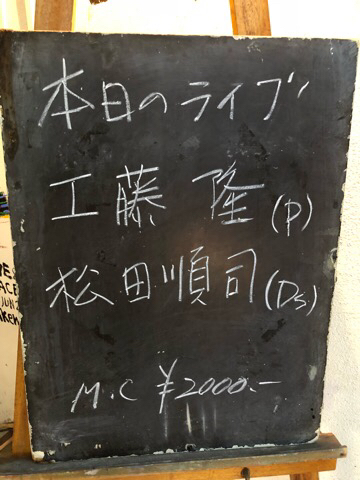 本日のライブ
工藤 隆(P)
松田順司(Ds)
M.C ¥2000.-